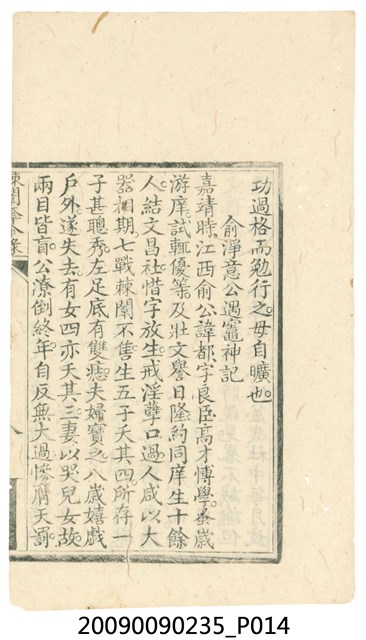 功過格而勉行之毋自曠也
俞淨意公遇竈神記
嘉靖時江西俞公諱都字良臣高才博學蚤歲
游庠試輒優等及壯文譽日隆約同庠生十餘
人結文昌社惜字放生戒淫孽口過人咸以大
器相期七戰棘闈不售生五子夭其四所存一
子甚聰秀左足底有雙痣夫婦寶之八歲嬉戲
戶外遂失去有女四亦夭其三妻以哭兒女故
兩目皆盲公潦倒終年自反無大過慘膺天罰
20090090235_P014